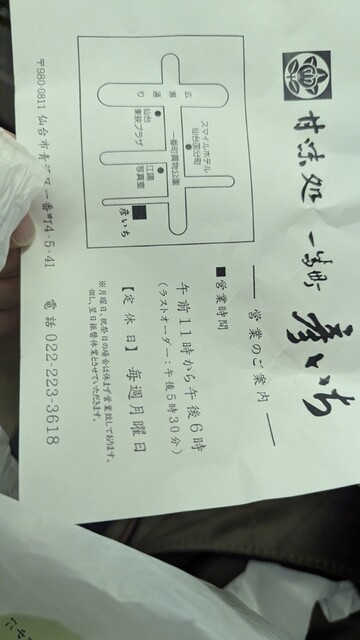 甘味処 一番町 彦いち
営業のご案内
■営業時間
午前11時から午後6時
(ラストオーダー:午後5時30分)
【定休日】毎週月曜日
※月曜日、祝祭日の場合は休まず営業致しております。
但し、翌日振替休業とさせていただきます。
スマイルホテル
仙台国分町
広瀬通り
一番町買物公園
仙台
東映プラザ
江陽
写真室
彦いち
〒980-0811 仙台市青葉区一番町4-5-41 電話 022-223-3618